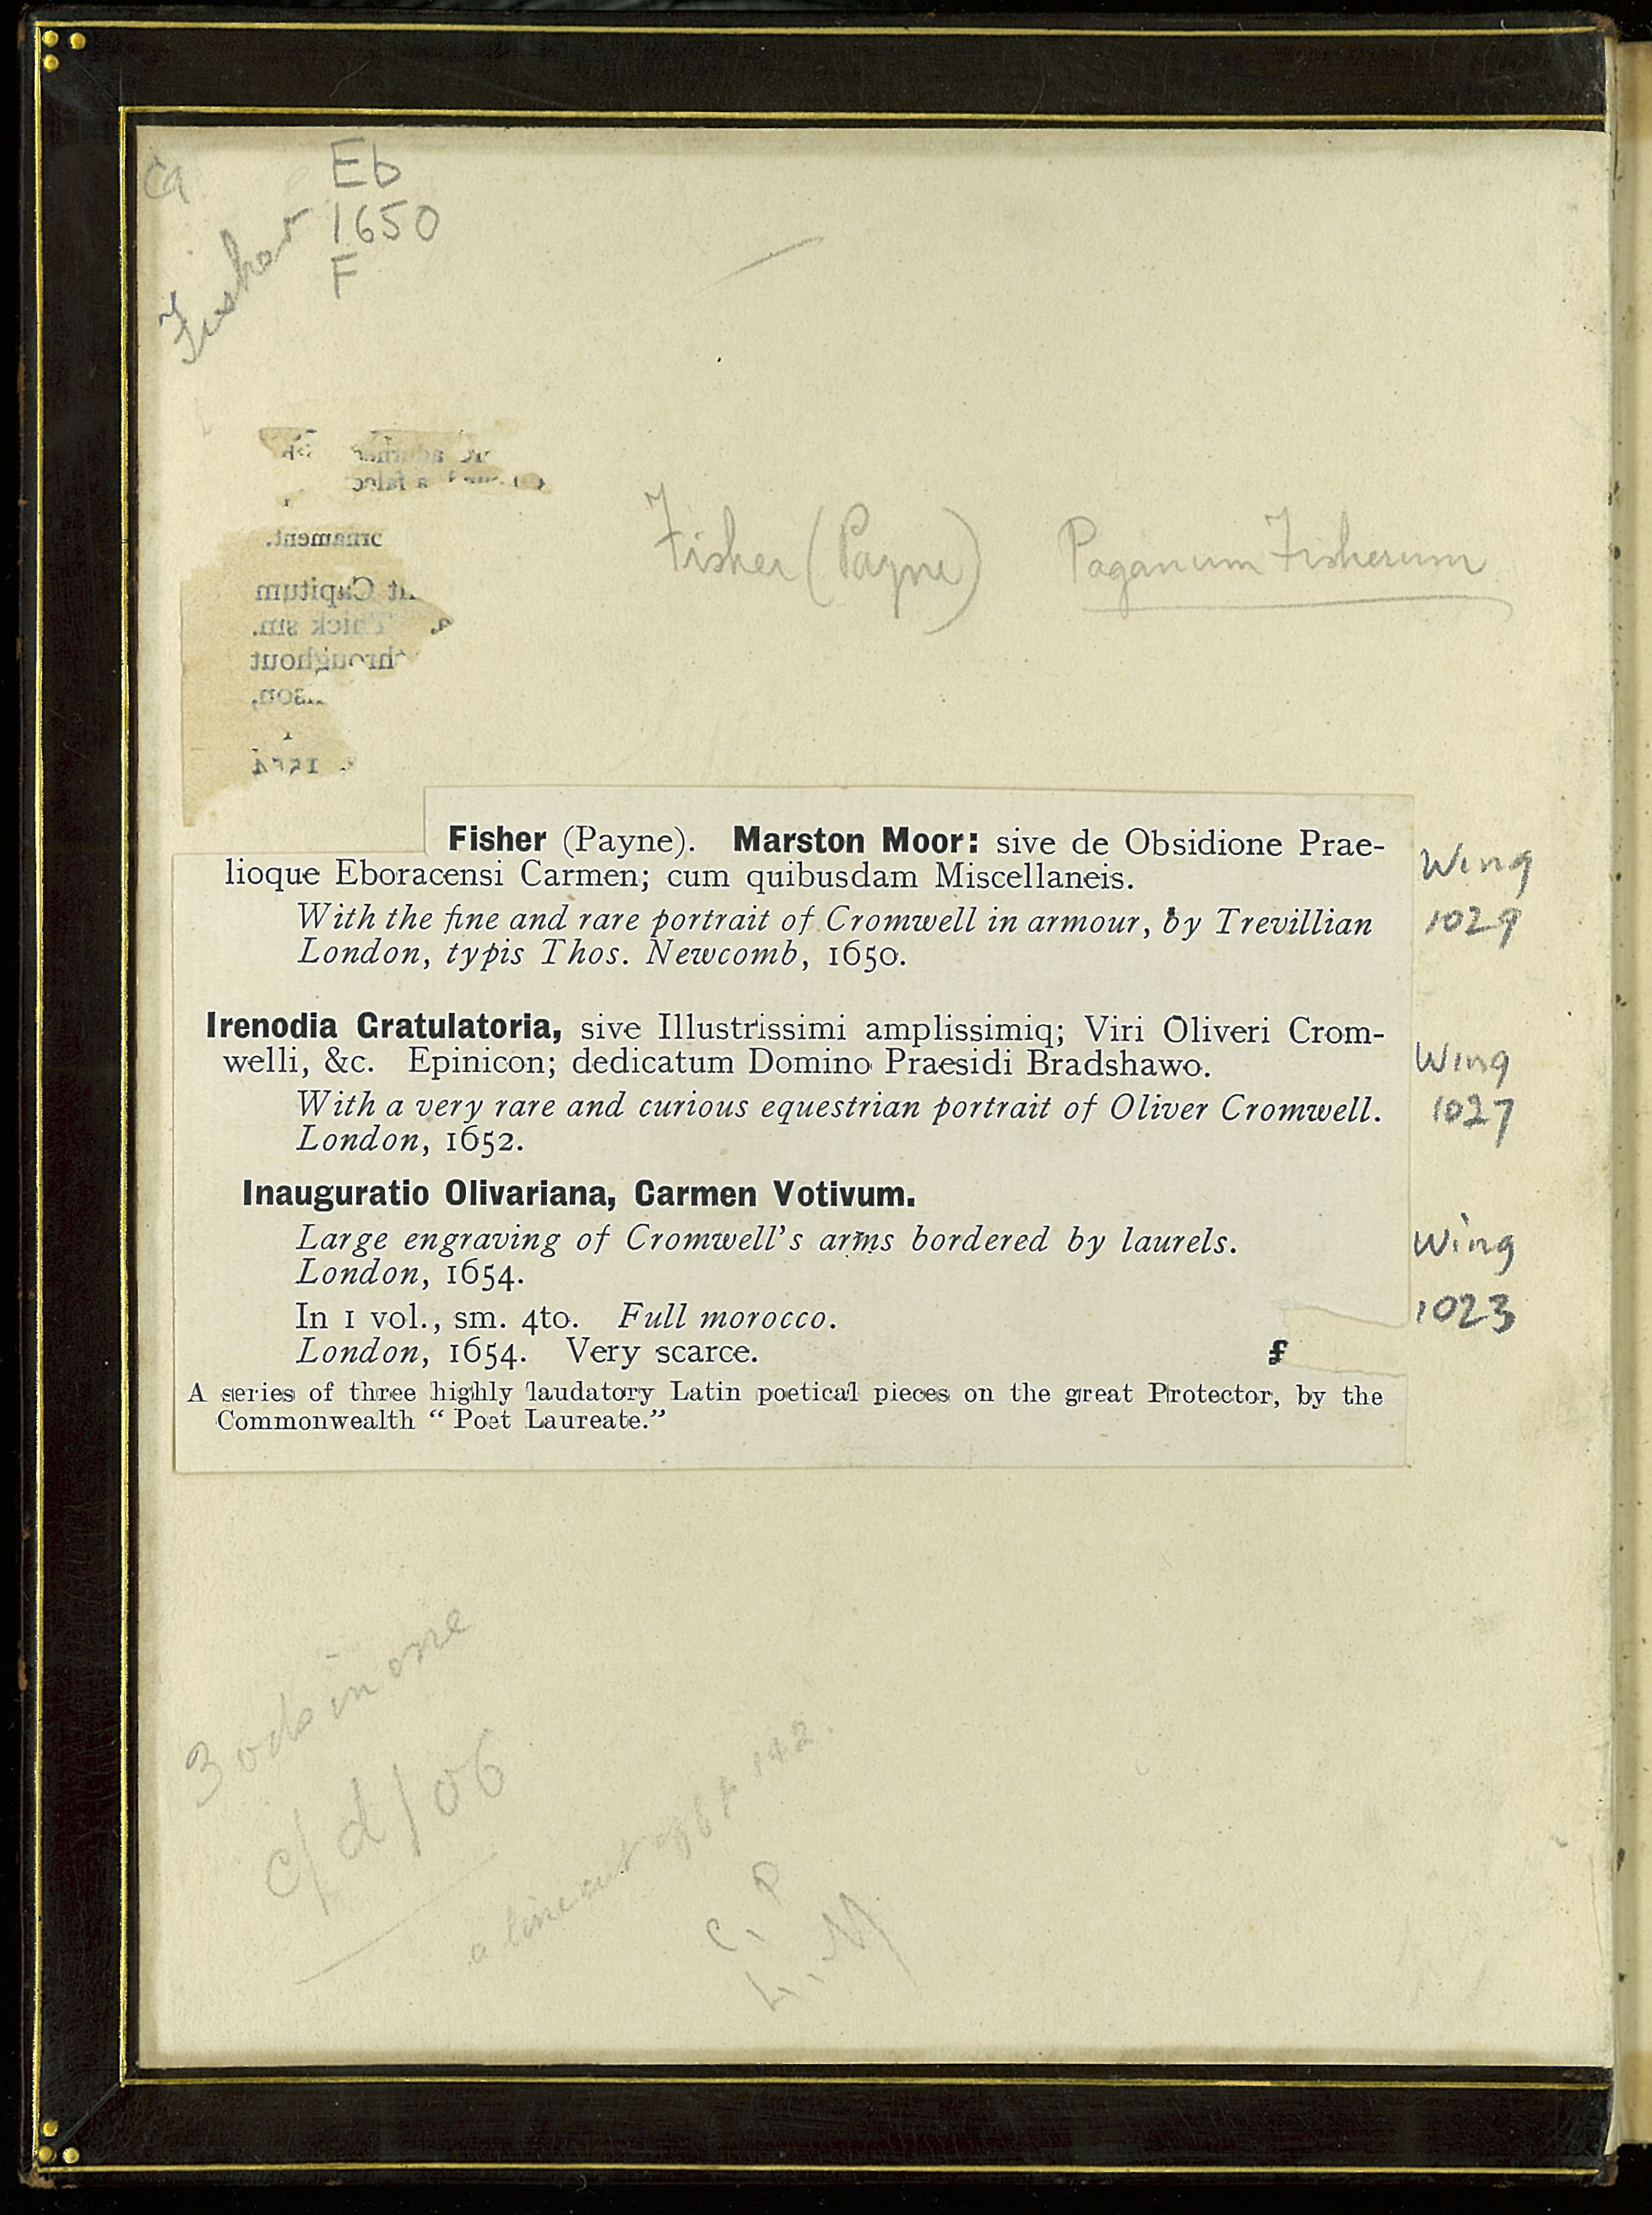 Ca
Eb
1650
F
Fisher
Fisher (Payne) Paganum Fisherum
ornament.
Capitum
Thick sm.
throughout
Fisher (Payne). Marston Moor: sive de Obsidione Prae-
lioque Eboracensi Carmen; cum quibusdam Miscellaneis.
With the fine and rare portrait of Cromwell in armour, by Trevillian
London, typis Thos. Newcomb, 1650.
Wing
1029
Irenodia Gratulatoria, sive Illustrissimi amplissimiq; Viri Oliveri Crom-
welli, &c. Epinicon; dedicatum Domino Praesidi Bradshawo.
With a very rare and curious equestrian portrait of Oliver Cromwell.
London, 1652.
Wing
1027
Inauguratio Olivariana, Carmen Votivum.
Large engraving of Cromwell's arms bordered by laurels.
London, 1654.
Wing
1023
In 1 vol., sm. 4to. Full morocco.
London, 1654. Very scarce. £
A series of three highly laudatory Latin poetical pieces on the great Protector, by the
Commonwealth "Poet Laureate."
3 vols in one
c/d/06
a line cut off 142.
C. P
L. M